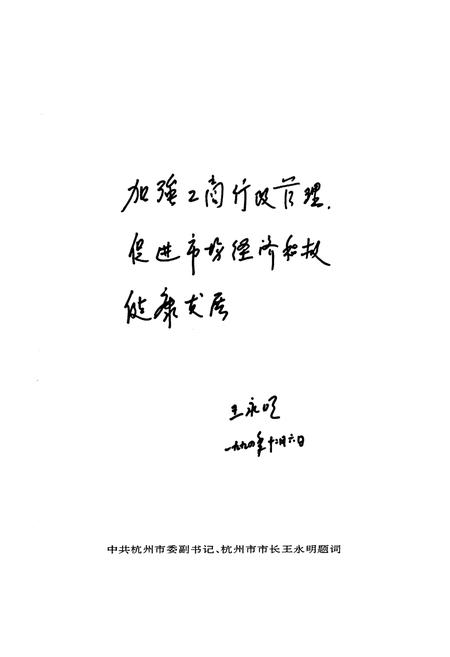 加強工商行政管理，
促进市场经济
健康发展
王永明
一九九四年十二月六日
中共杭州市委副书记、杭州市市长王永明题词